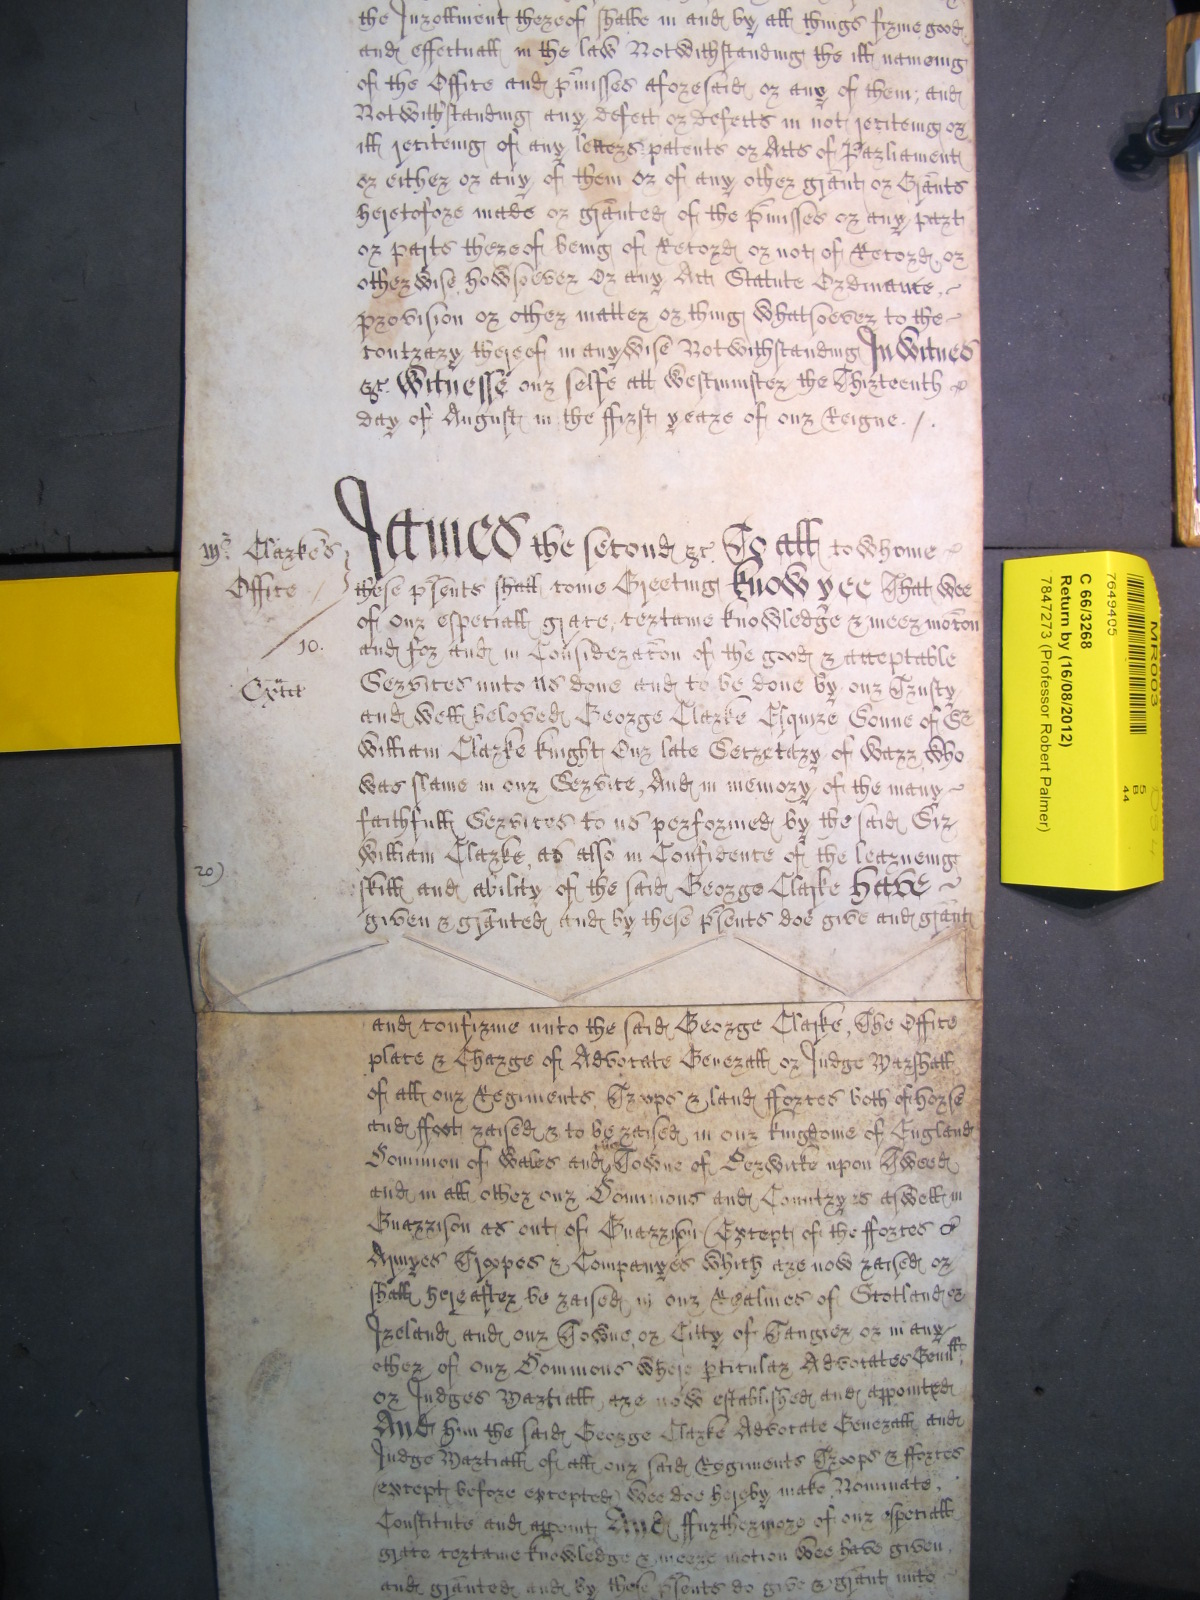 the Inrollment thereof shalbe in and by all things firme good
and effectuall in the law Notwithstanding the ill nameing
of the Office and p'misses aforesaid or any of them; and
Notwithstanding any defect or defects in not reciteing or
ill reciteing of any letters patents or Acts of Parliament
or either or any of them Or of any other grant or Grants
heretofore made or granted of the p'misses or any part
or parts thereof being of Record or not of Record, or
otherwise howsoever Or any Act Statute Ordinance,
provision or other matter or thing whatsoever to the
contrary thereof in any wise Notwithstanding In witnes
&c. Witnesse our selfe att Westminster the Thirteenth
day of August in the ffirst yeare of our Reigne. /.
James the second &c. To all to whome
mr. Clarke's
Office
these p'sents shall come Greeting know yee That wee
of our especiall grace, certaine knowledge & meer mocon
10.
and for and in Consideracon of the good & acceptable
Exr
Services unto us done and to be done by our Trusty
and well beloved George Clarke Esquire Sonne of Sr
William Clarke knight Our late Secretary of Warr, who
was slaine in our Service, And in memory of the many
faithfull Services to us performed by the said Sir
William Clarke, as also in Confidence of the learneing
20)
skill and ability of the said George Clarke have
given & granted and by these p'sents doe give and grant
and confirme unto the said George Clarke, The Office
place & Charge of Advocate Generall or Judge Marshall
of all our Regiments Troops & land fforces both of horse
and ffoot raised & to be raised in our kingdome of England
Dominion of Wales and Towne of Berwicke upon Tweed
and in all other our Dominions and Countryes aswell in
Guarrison as out of Guarrison (Except of the fforces &
Armyes Troopes & Companyes which are now raised or
shall hereafter be raised in our Realmes of Scotland or
Ireland and our Towne, or Citty of Tangier or in any
other of our Dominions where p'ticular Advocates Gen'll
or Judges Martiall are now established and appointed
And him the said George Clarke Advocate Generall and
Judge Martiall of all our said Regiments Troops & fforces
(except before excepted) Wee doe hereby make Nominate,
Constitute and appoint And ffurthermore of our especiall
grace certaine knowledge & meere motion Wee have given,
and granted and by these p'sents do give & grant unto
MR003
5
B
44
7649405
C 66/3268
Return by (16/08/2012)
7847273 (Professor Robert Palmer)